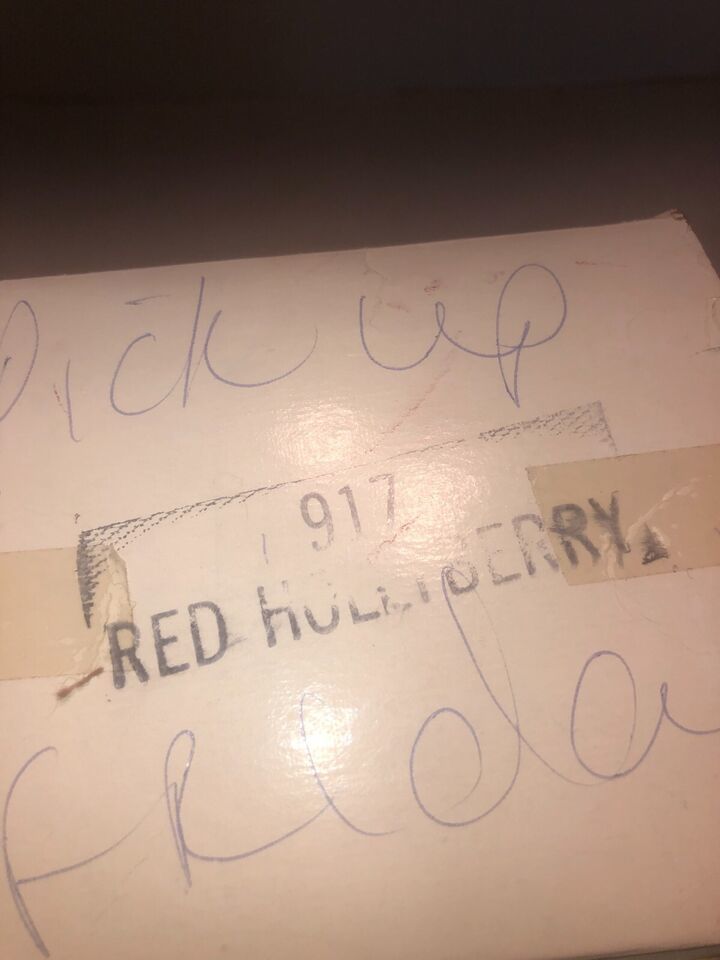 Pick up
917
RED HOLLYBERRY
Friday